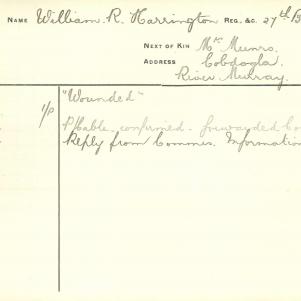 NAME William. R. Harrington REG. &C. 27th B
NEXT OF KIN Mr Munro.
ADDRESS Cobdogla.
River Murray.
"Wounded"
1/P P/Cable confirmed. forwarded Co
Reply from Commis. Information